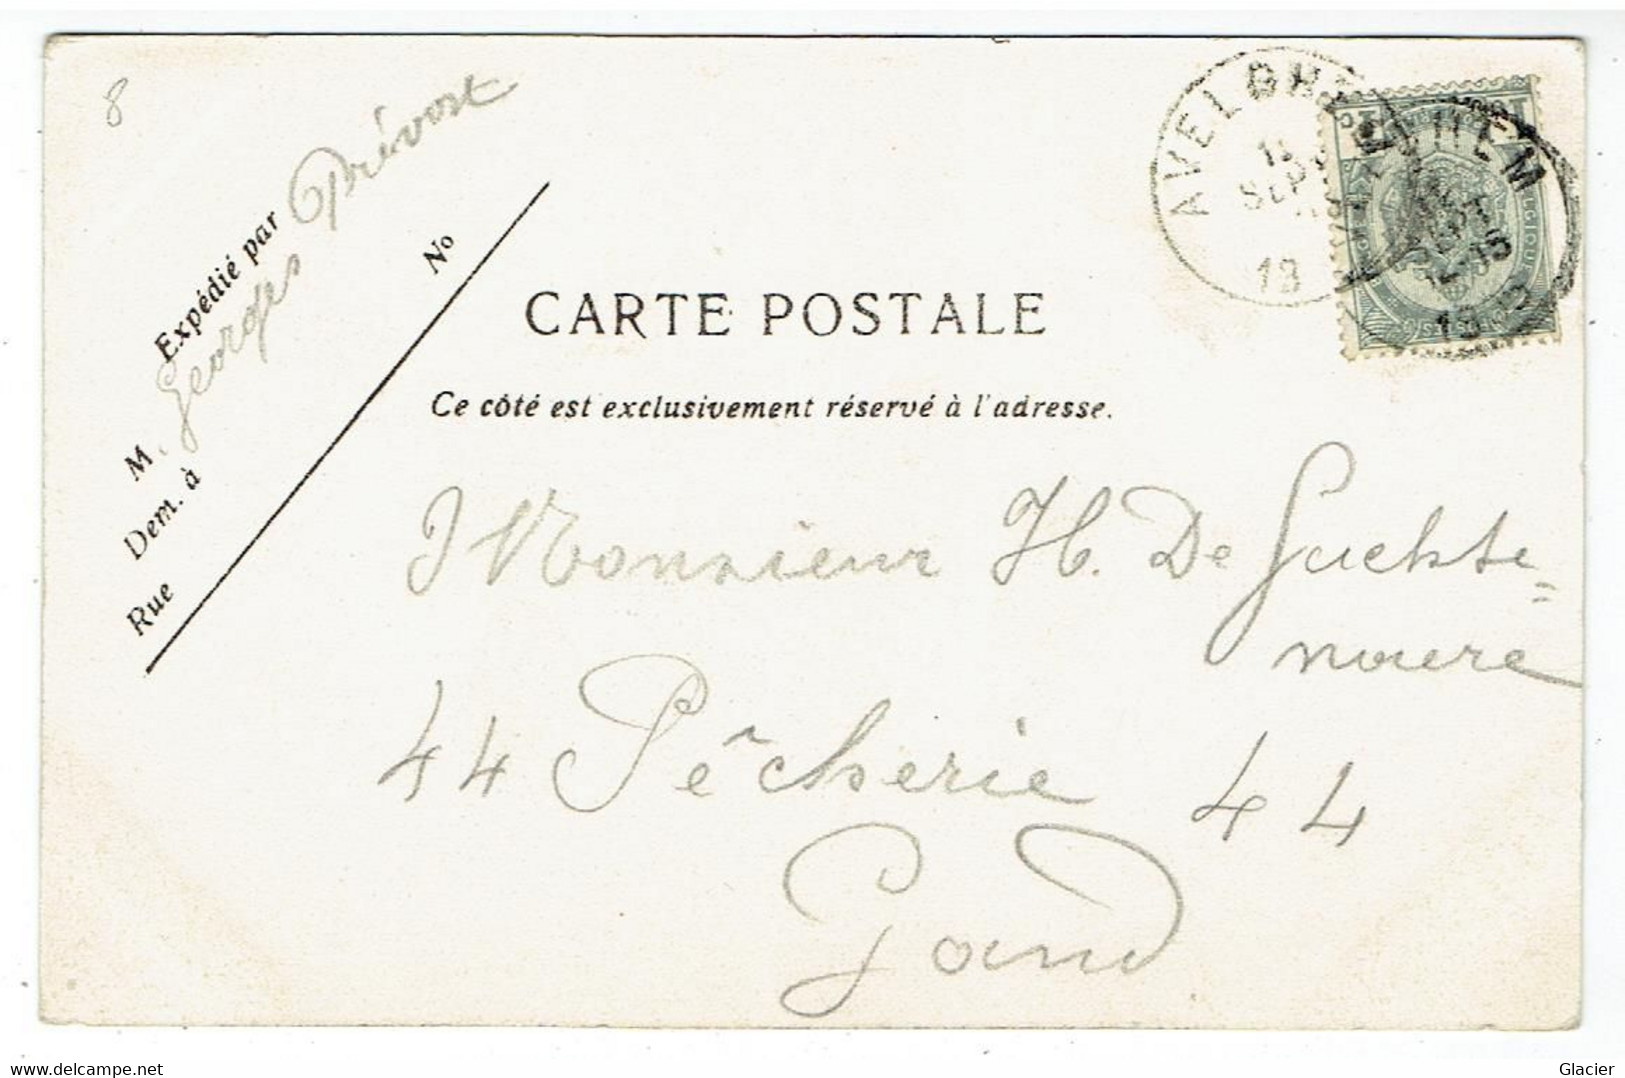 8
Expédié par
M. Georges Prévost
Dem. à
Rue
No
AVELGHEM
SEPT
CARTE POSTALE
Ce côté est exclusivement réservé à l'adresse.
Monsieur H. De Guchte=
naere
44 Pêcherie 44
Gand
Glacier